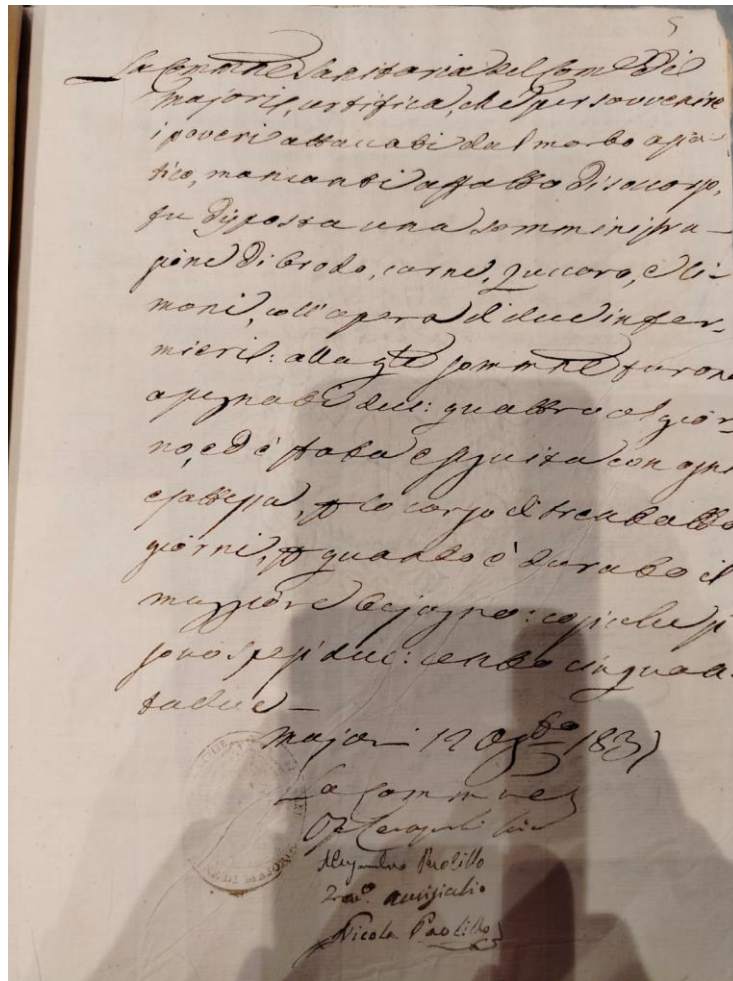 5
La Comm.ne Sanitaria del Com.e di
Majori, certifica, che per sovvenire
i poveri attaccati dal morbo asia-
tico, mancanti affatto di soccorso,
fu disposta una somministra-
zione di brodo, carne, zuccaro, e li-
moni, coll'opera di due infer-
mieri: alla q.te somm.ne furono
assegnati duc: quattro al gior-
no, ed è stata eseguita con ogni
esattezza, p lo corso di trentotto
giorni, p quanto è durato il
maggiore bisogno: cosicche si
sono spesi duc: cento cinquan-
tadue—
Majori 12 8bre 1837
La Comm.ne
Alessandro Paolillo
Nicola Paolillo